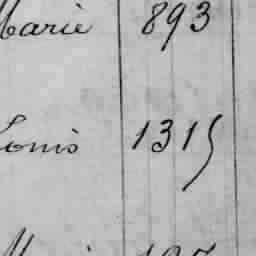 Marie 893
Louis 1315